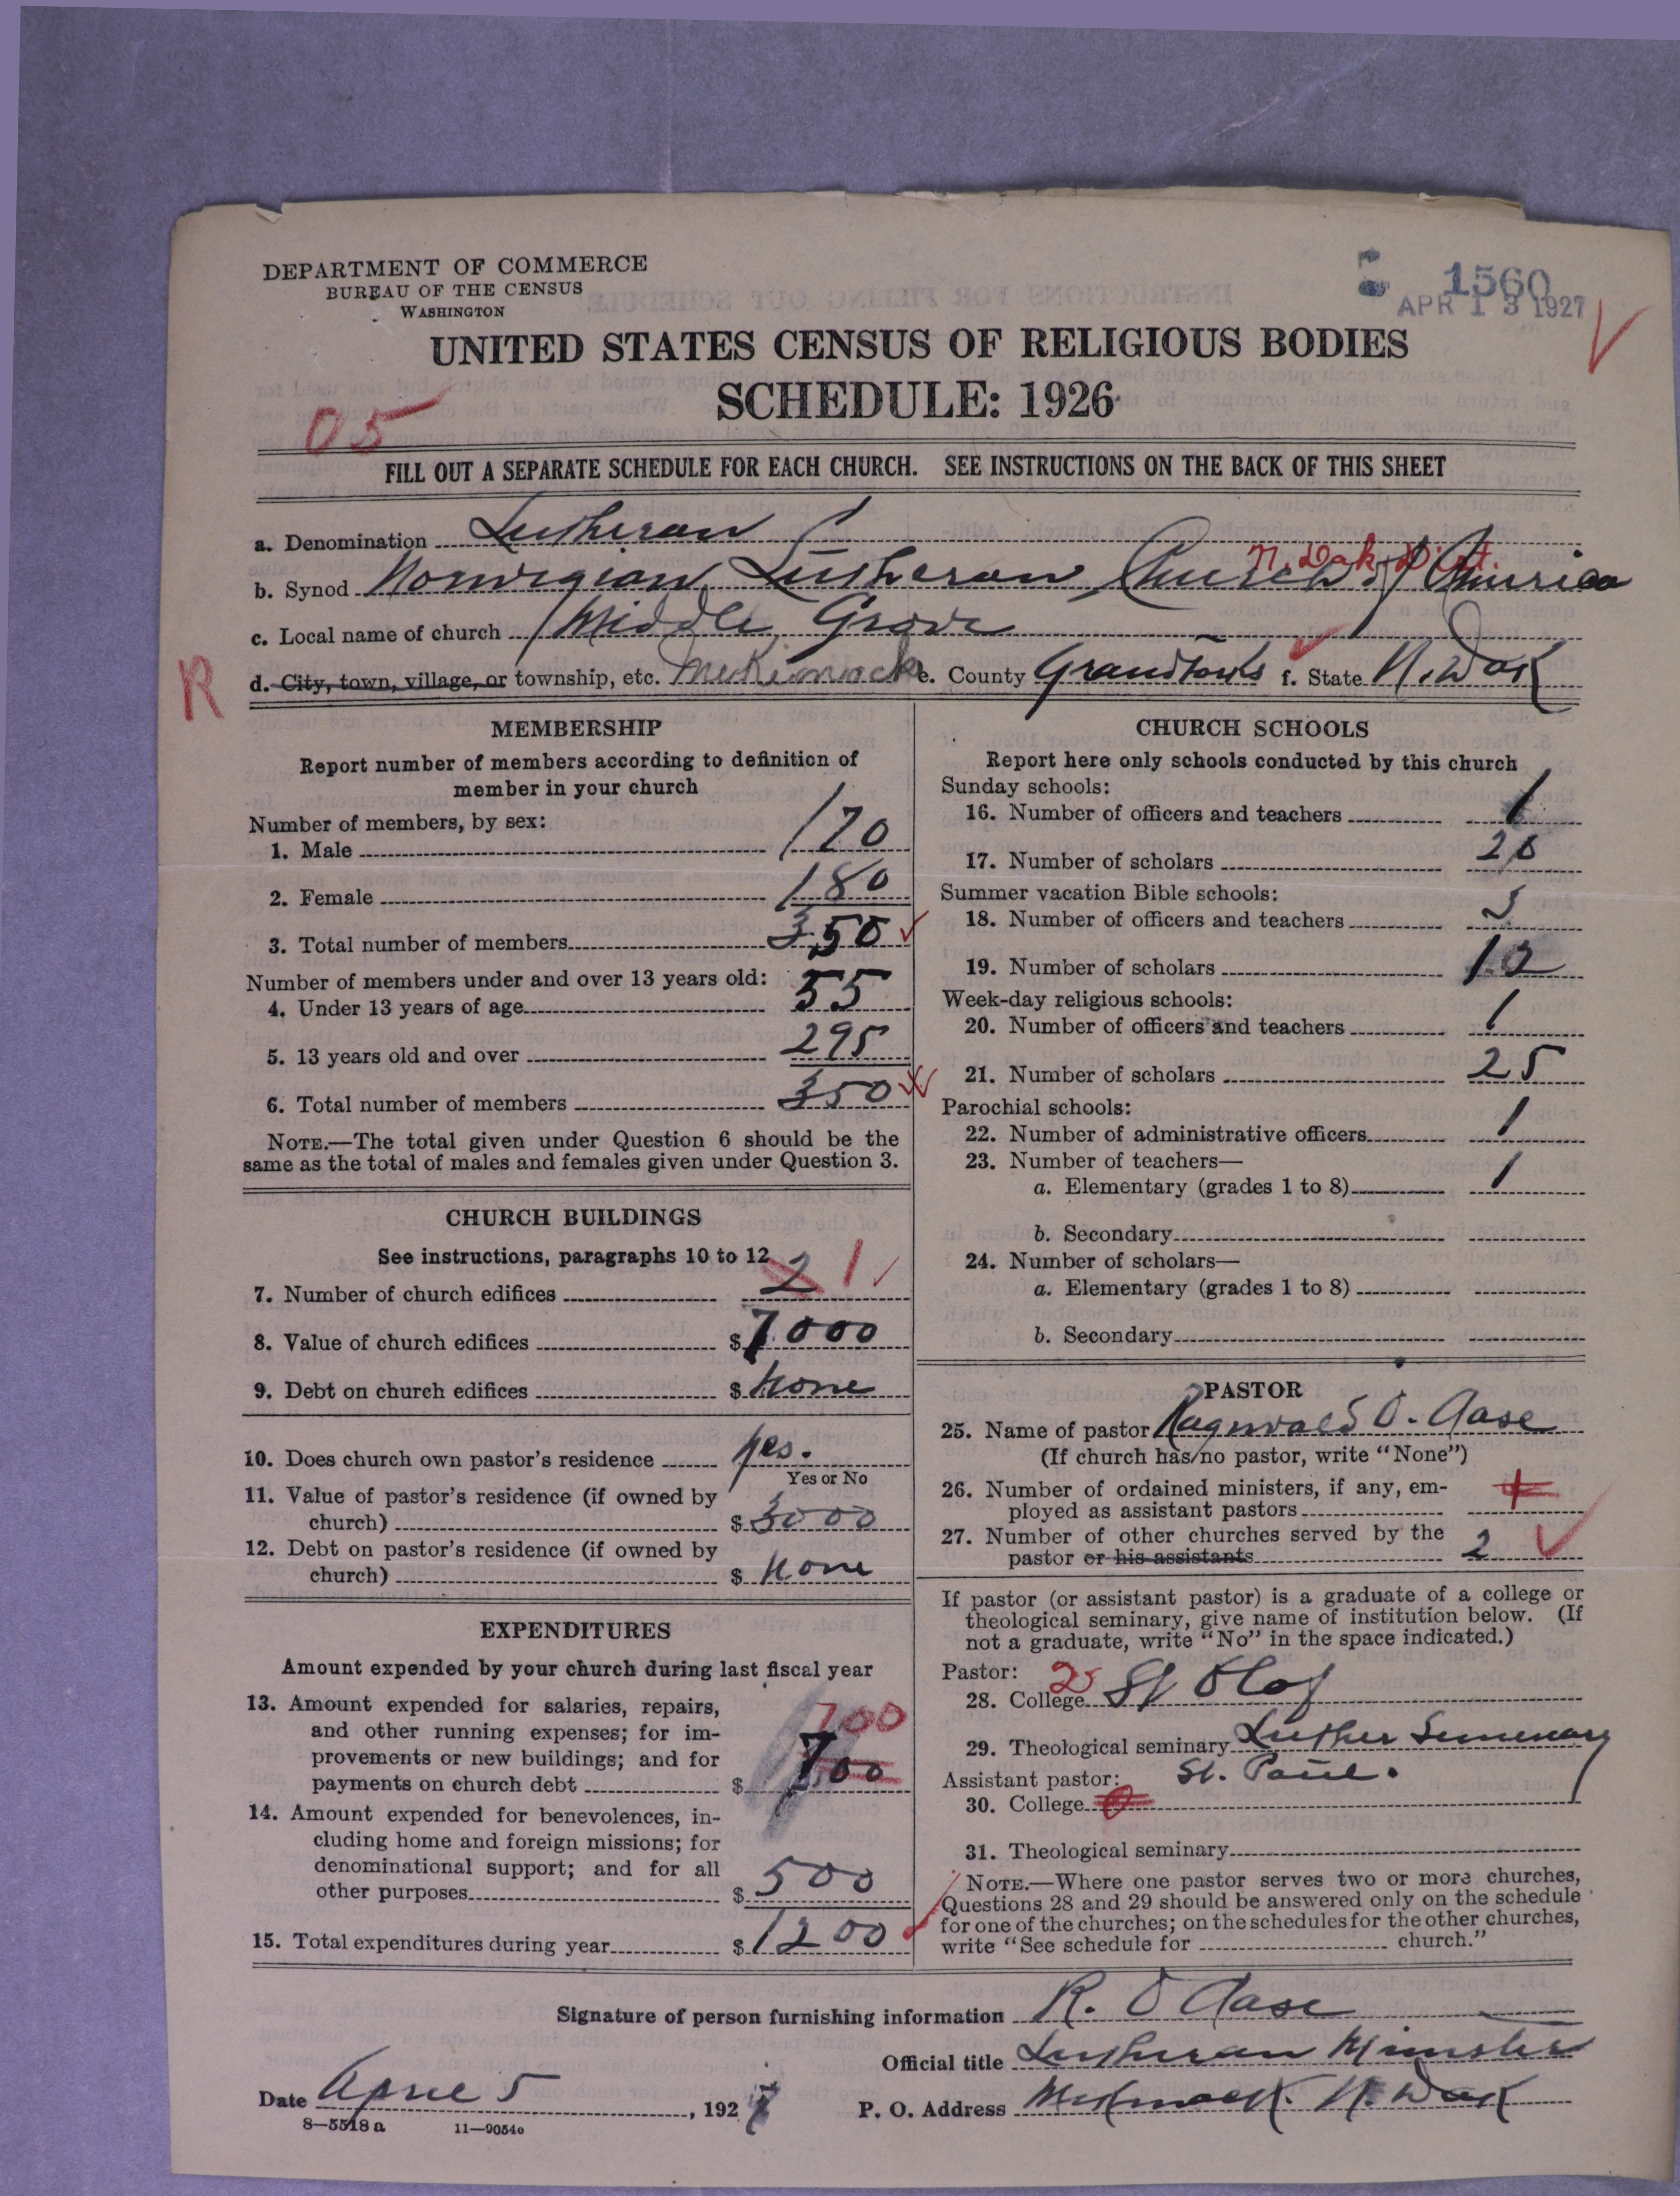 DEPARTMENT OF COMMERCE
BUREAU OF THE CENSUS
WASHINGTON
1560
APR 13 1927
UNITED STATES CENSUS OF RELIGIOUS BODIES
SCHEDULE: 1926
05
FILL OUT A SEPARATE SCHEDULE FOR EACH CHURCH. SEE INSTRUCTIONS ON THE BACK OF THIS SHEET
a. Denomination Lutheran
N. Dak. Dist.
b. Synod Norwegian Lutheran Church of America
c. Local name of church Middle Grove
R
d. City, town, village, or township, etc. Mekinock e. County Grand Forks f. State N. Dak
MEMBERSHIP
Report number of members according to definition of
member in your church
Number of members, by sex:
1. Male 170
2. Female 180
3. Total number of members 350
Number of members under and over 13 years old:
4. Under 13 years of age 55
5. 13 years old and over 295
6. Total number of members 350
NOTE.—The total given under Question 6 should be the
same as the total of males and females given under Question 3.
CHURCH BUILDINGS
See instructions, paragraphs 10 to 12
7. Number of church edifices 2 1
8. Value of church edifices $ 7000
9. Debt on church edifices $ None
10. Does church own pastor's residence yes.
Yes or No
11. Value of pastor's residence (if owned by
church) $ 3000
12. Debt on pastor's residence (if owned by
church) $ None
EXPENDITURES
Amount expended by your church during last fiscal year
13. Amount expended for salaries, repairs,
and other running expenses; for im-
provements or new buildings; and for
payments on church debt $ 700 700
14. Amount expended for benevolences, in-
cluding home and foreign missions; for
denominational support; and for all
other purposes $ 500
15. Total expenditures during year $ 1200
CHURCH SCHOOLS
Report here only schools conducted by this church
Sunday schools:
16. Number of officers and teachers 1
17. Number of scholars 20
Summer vacation Bible schools:
18. Number of officers and teachers
19. Number of scholars 12
Week-day religious schools:
20. Number of officers and teachers 1
21. Number of scholars 25
Parochial schools:
22. Number of administrative officers 1
23. Number of teachers—
a. Elementary (grades 1 to 8) 1
b. Secondary
24. Number of scholars—
a. Elementary (grades 1 to 8)
b. Secondary
PASTOR
25. Name of pastor Ragnvald O. Aase
(If church has no pastor, write "None")
26. Number of ordained ministers, if any, em-
ployed as assistant pastors
27. Number of other churches served by the
pastor or his assistants 2
If pastor (or assistant pastor) is a graduate of a college or
theological seminary, give name of institution below. (If
not a graduate, write "No" in the space indicated.)
Pastor:
28. College St Olaf
29. Theological seminary Luther Seminary
Assistant pastor: St. Paul.
30. College 0
31. Theological seminary
NOTE.—Where one pastor serves two or more churches,
Questions 28 and 29 should be answered only on the schedule
for one of the churches; on the schedules for the other churches,
write "See schedule for church."
Signature of person furnishing information R. O Aase
Official title Lutheran Minister
Date April 5, 1927
P. O. Address Mekinock. N. Dak
8—5518 a 11—9054o